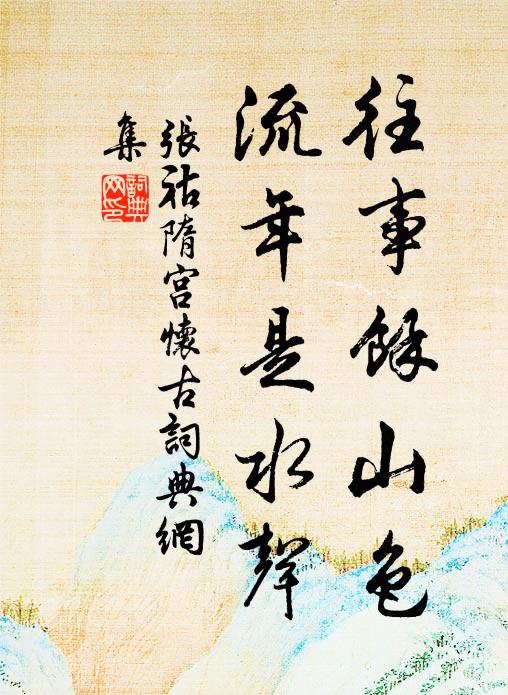 往事餘山色
流年是水聲
張祜隋宮懷古詞典網
集
詞典
网印